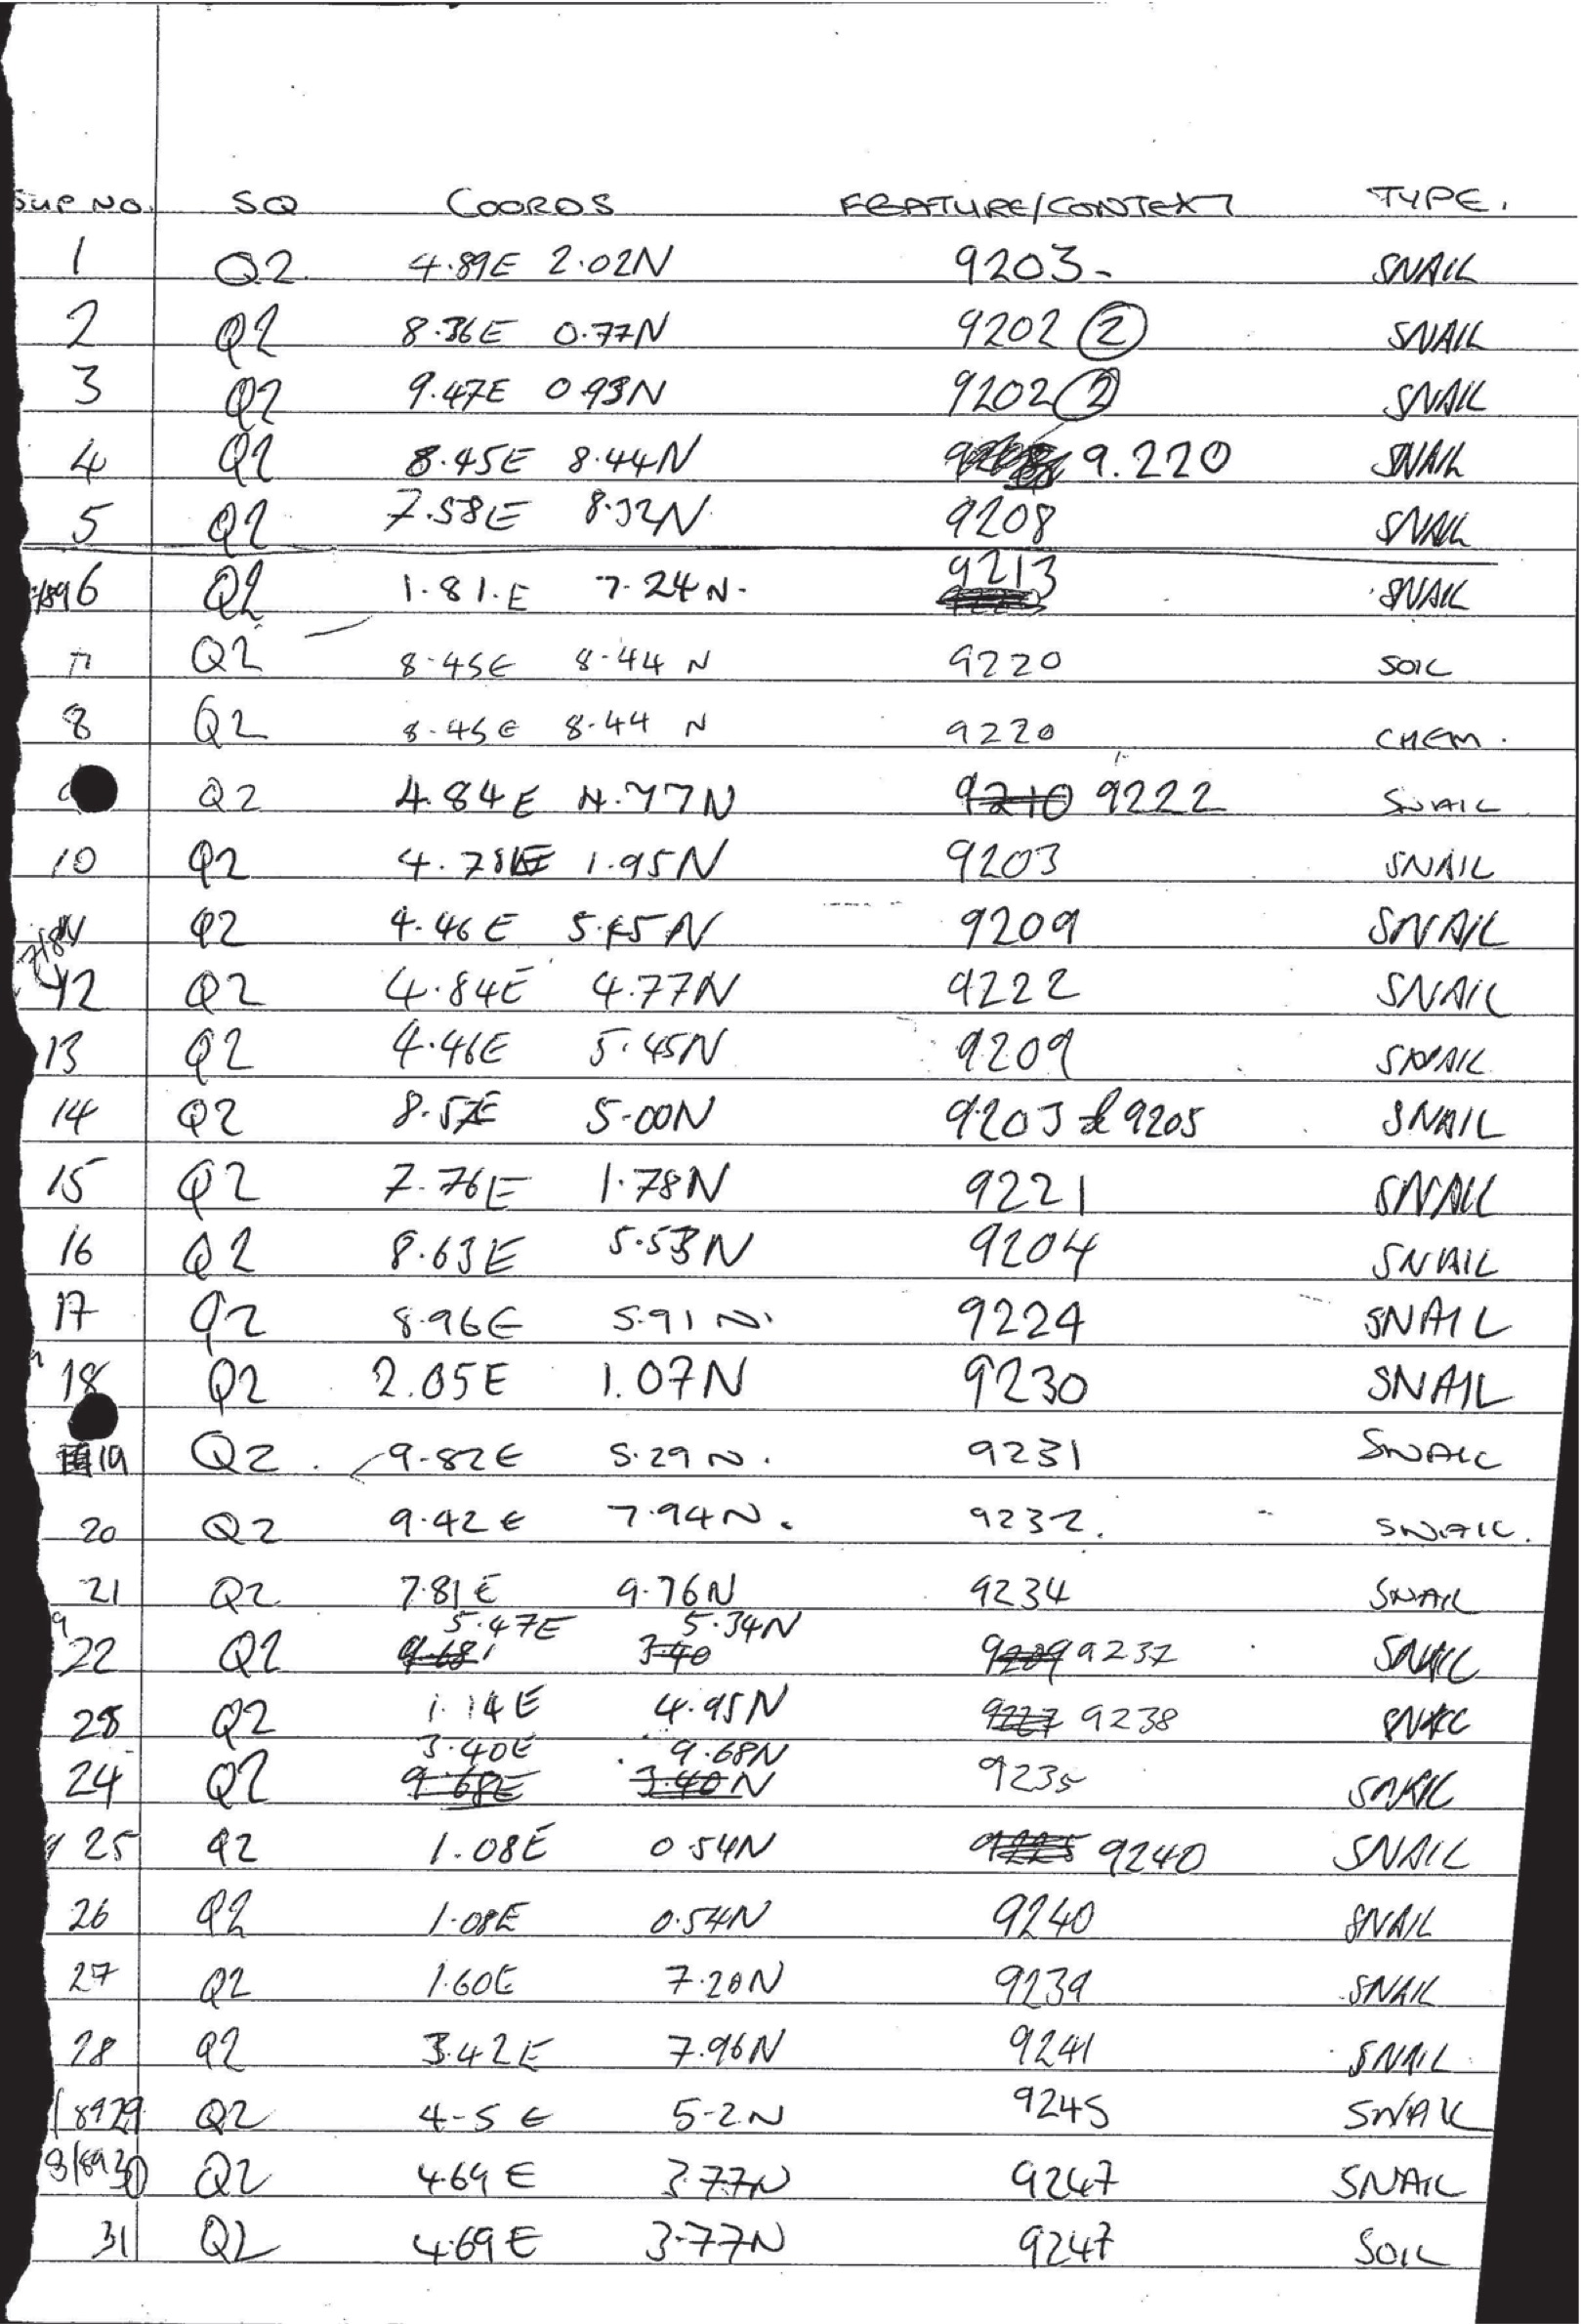 SUP NO. SQ COORDS FEATURE/CONTEXT TYPE.
1 Q2. 4.89E 2.02N 9203- SNAIL
2 Q2 8.36E 0.77N 9202 ② SNAIL
3 Q2 9.47E 0.93N 9202 ② SNAIL
4 Q2 8.45E 8.44N 9.220 SNAIL
5 Q2 7.58E 8.32N. 9208 SNAIL
6 Q2 1.81.E 7.24N. 9213 SNAIL
7 Q2 8.45E 8.44 N 9220 SOIL
8 Q2 8.45E 8.44 N 9220 CHEM.
Q2 4.84E 4.77N 9210 9222 SNAIL
10 Q2 4.78E 1.95N 9203 SNAIL
Q2 4.46E 5.45N 9209 SNAIL
12 Q2 4.84E 4.77N 9222 SNAIL
13 Q2 4.46E 5.45N 9209 SNAIL
14 Q2 8.57E 5.00N 9203 & 9205 SNAIL
15 Q2 7.76E 1.78N 9221 SNAIL
16 Q2 8.63E 5.53N 9204 SNAIL
17 Q2 8.96E 5.91N. 9224 SNAIL
18 Q2 2.05E 1.07N 9230 SNAIL
19 Q2. 9.82E 5.29N. 9231 SNAIL
20 Q2 9.42E 7.94N. 9232. SNAIL.
21 Q2 7.81E 9.76N 9234 SNAIL
5.47E 5.34N
22 Q2 9.68 3.40 9209 9237 SNAIL
23 Q2 1.14E 4.95N 9227 9238 SNAIL
3.40E 9.68N
24 Q2 9.68E 3.40N 9235 SNAIL
25 Q2 1.08E 0.54N 9240 SNAIL
26 Q2 1.08E 0.54N 9240 SNAIL
27 Q2 1.60E 7.20N 9239 SNAIL
28 Q2 3.42E 7.96N 9241 SNAIL
/8929 Q2 4-5E 5-2N 9245 SNAIL
8/8930 Q2 4.69E 3.77N 9247 SNAIL
31 Q2 4.69E 3.77N 9247 SOIL